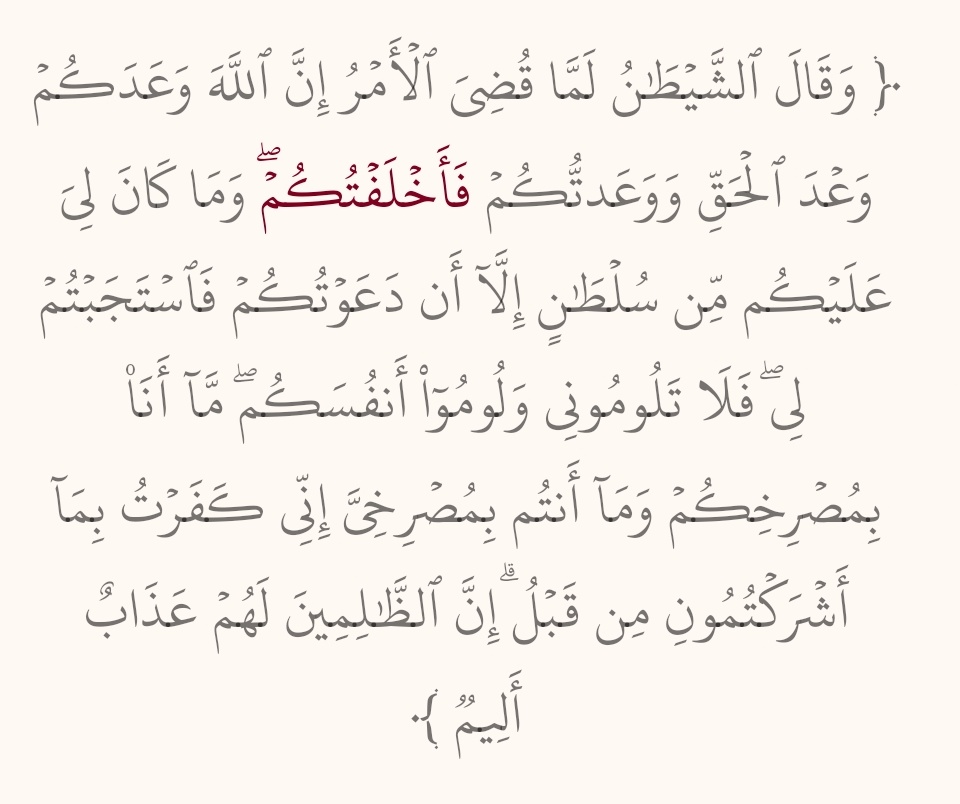 ﴿ وَقَالَ ٱلشَّيْطَـٰنُ لَمَّا قُضِىَ ٱلْأَمْرُ إِنَّ ٱللَّهَ وَعَدَكُمْ
وَعْدَ ٱلْحَقِّ وَوَعَدتُّكُمْ فَأَخْلَفْتُكُمْ ۖ وَمَا كَانَ لِىَ
عَلَيْكُم مِّن سُلْطَـٰنٍ إِلَّآ أَن دَعَوْتُكُمْ فَٱسْتَجَبْتُمْ
لِى ۖ فَلَا تَلُومُونِى وَلُومُوٓا۟ أَنفُسَكُم ۖ مَّآ أَنَا۠
بِمُصْرِخِكُمْ وَمَآ أَنتُم بِمُصْرِخِىَّ إِنِّى كَفَرْتُ بِمَآ
أَشْرَكْتُمُونِ مِن قَبْلُ ۗ إِنَّ ٱلظَّـٰلِمِينَ لَهُمْ عَذَابٌ
أَلِيمٌ ﴾